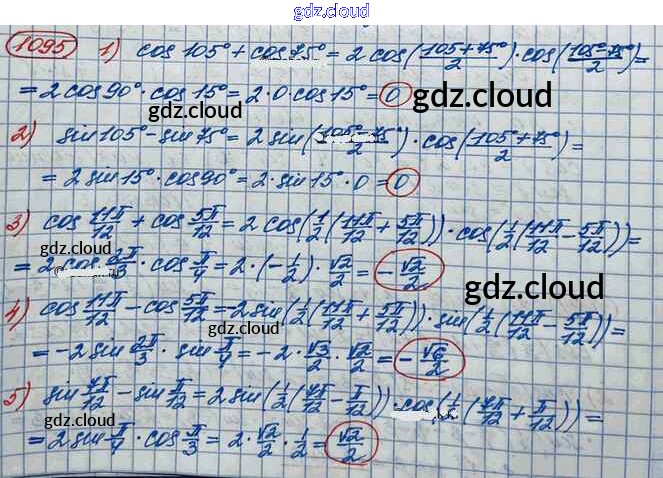 gdz.cloud
1095 1) cos 105° + cos 75° = 2 cos((105°+75°)/2) · cos((105°-75°)/2) =
= 2 cos 90° · cos 15° = 2 · 0 · cos 15° = 0 gdz.cloud
gdz.cloud
2) sin 105° - sin 75° = 2 sin((105°-75°)/2) · cos((105°+75°)/2) =
= 2 sin 15° · cos 90° = 2 · sin 15° · 0 = 0
3) cos 11π/12 + cos 5π/12 = 2 cos(1/2(11π/12 + 5π/12)) · cos(1/2(11π/12 - 5π/12)) =
gdz.cloud
= 2 cos 2π/3 · cos π/4 = 2 · (-1/2) · √2/2 = -√2/2
gdz.cloud
4) cos 11π/12 - cos 5π/12 = -2 sin(1/2(11π/12 + 5π/12)) · sin(1/2(11π/12 - 5π/12)) =
gdz.cloud
= -2 sin 2π/3 · sin π/4 = -2 · √3/2 · √2/2 = -√6/2
5) sin 7π/12 - sin π/12 = 2 sin(1/2(7π/12 - π/12)) · cos(1/2(7π/12 + π/12)) =
gdz.cloud
= 2 sin π/4 · cos π/3 = 2 · √2/2 · 1/2 = √2/2
gdz.cloud